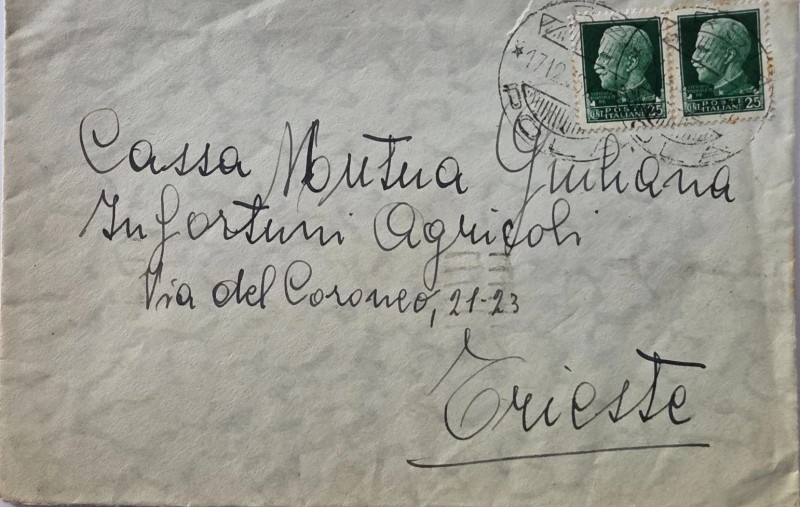 17.12
POLA
POSTE
ITALIANE
25
POSTE
ITALIANE
25
Cassa Mutua Giuliana
Infortuni Agricoli
Via del Coroneo, 21-23
Trieste